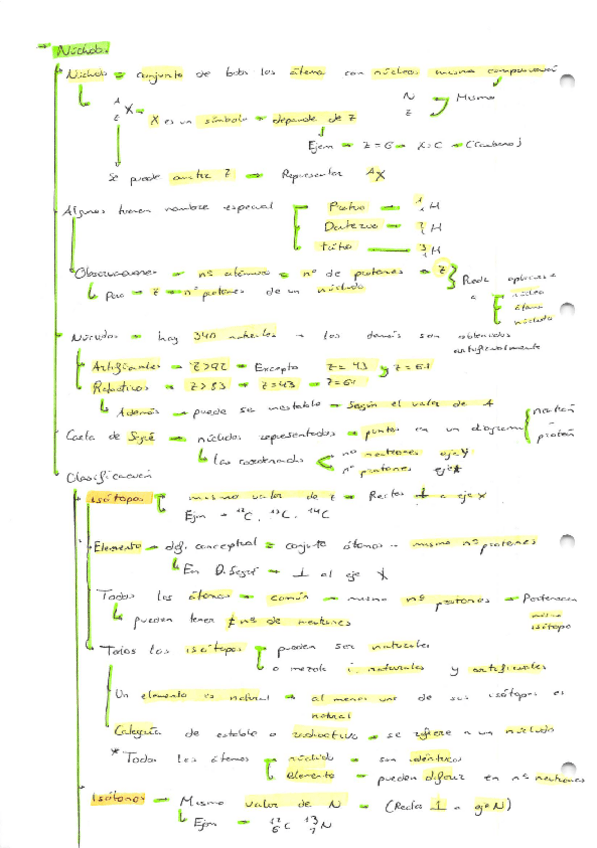 → Núclido.
Núclido = conjunto de todos los átomos con núcleos misma composición
A Z X → X es un símbolo → depende de Z
N Z Mismo
Ejem → Z = 6 → X = C → (Carbono)
Se puede omitir Z → Representar ᴬX
Algunos tienen nombre especial
Protio → ¹₁H
Deuterio → ²₁H
Tritio → ³₁H
Observaciones → nº atómico = nº de protones → Z
Puede aplicarse a núcleo átomo núclido
Pero → Z = nº protones de un núclido
Núclidos → hay 340 naturales → los demás son obtenidos
artificialmente
Artificiales → Z>92 → Excepto Z = 43 y Z = 61
Radiactivos → Z>83 → Z=43 → Z=61
Además → puede ser inestable → según el valor de A
Carta de Segré → núclidos representados → puntos en un diagrama neutrón protón
Las coordenadas nº neutrones eje Y
nº protones eje X
Clasificación
isótopos mismo valor de Z → Rectas ⊥ a eje X
Ejm → ¹²C, ¹³C, ¹⁴C
Elemento → def. conceptual = conjunto átomos → mismo nº protones
En D. Segré → ⊥ al eje X
Todos los átomos → común → mismo nº protones → Pertenecen
mismo isótopo
pueden tener ≠ nº de neutrones
Todos los isótopos pueden ser naturales
o mezcla i. naturales y artificiales
Un elemento es natural → al menos uno de sus isótopos es
natural
Categoría de estable o radiactivo → se refiere a un núclido
* Todos los átomos → núclido → son idénticos
elemento → pueden diferir en nº neutrones
Isótonos → Mismo valor de N → (Rectas ⊥ a eje N)
Ejm → ¹²₆C ¹³₇N